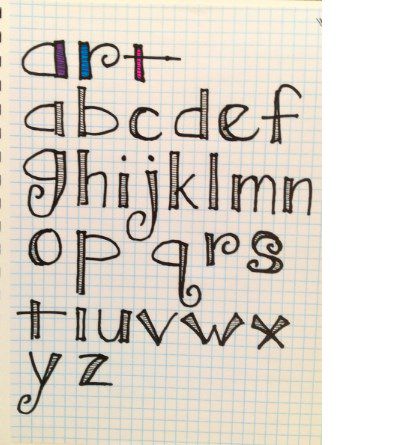 art
abcdef
ghijklmn
op qrs
tıuvwx
yz